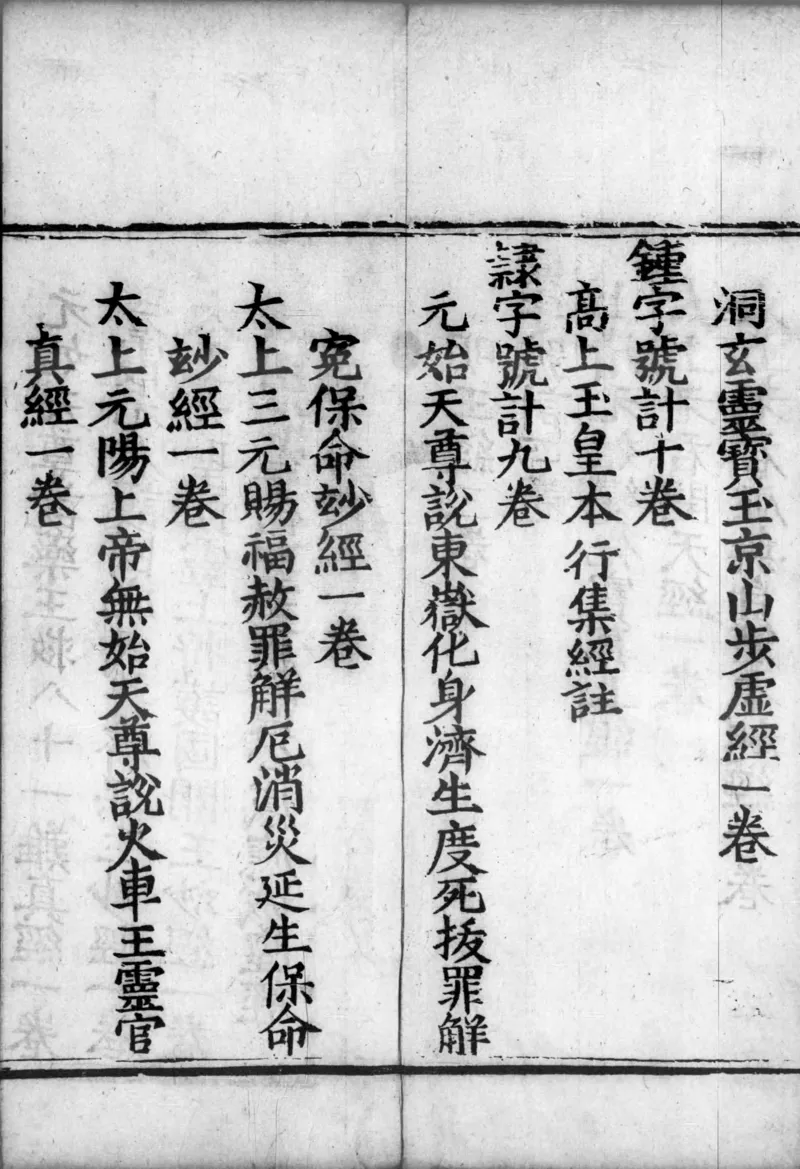 洞玄靈寳玉京山步虛經一卷
鍾字號計十卷
髙上玉皇本行集經註
隸字號計九卷
元始天尊說東嶽化身濟生度死拔罪解
寃保命玅經一卷
太上三元賜福赦罪解厄消災延生保命
玅經一卷
太上元陽上帝無始天尊說火車王靈官
真經一卷